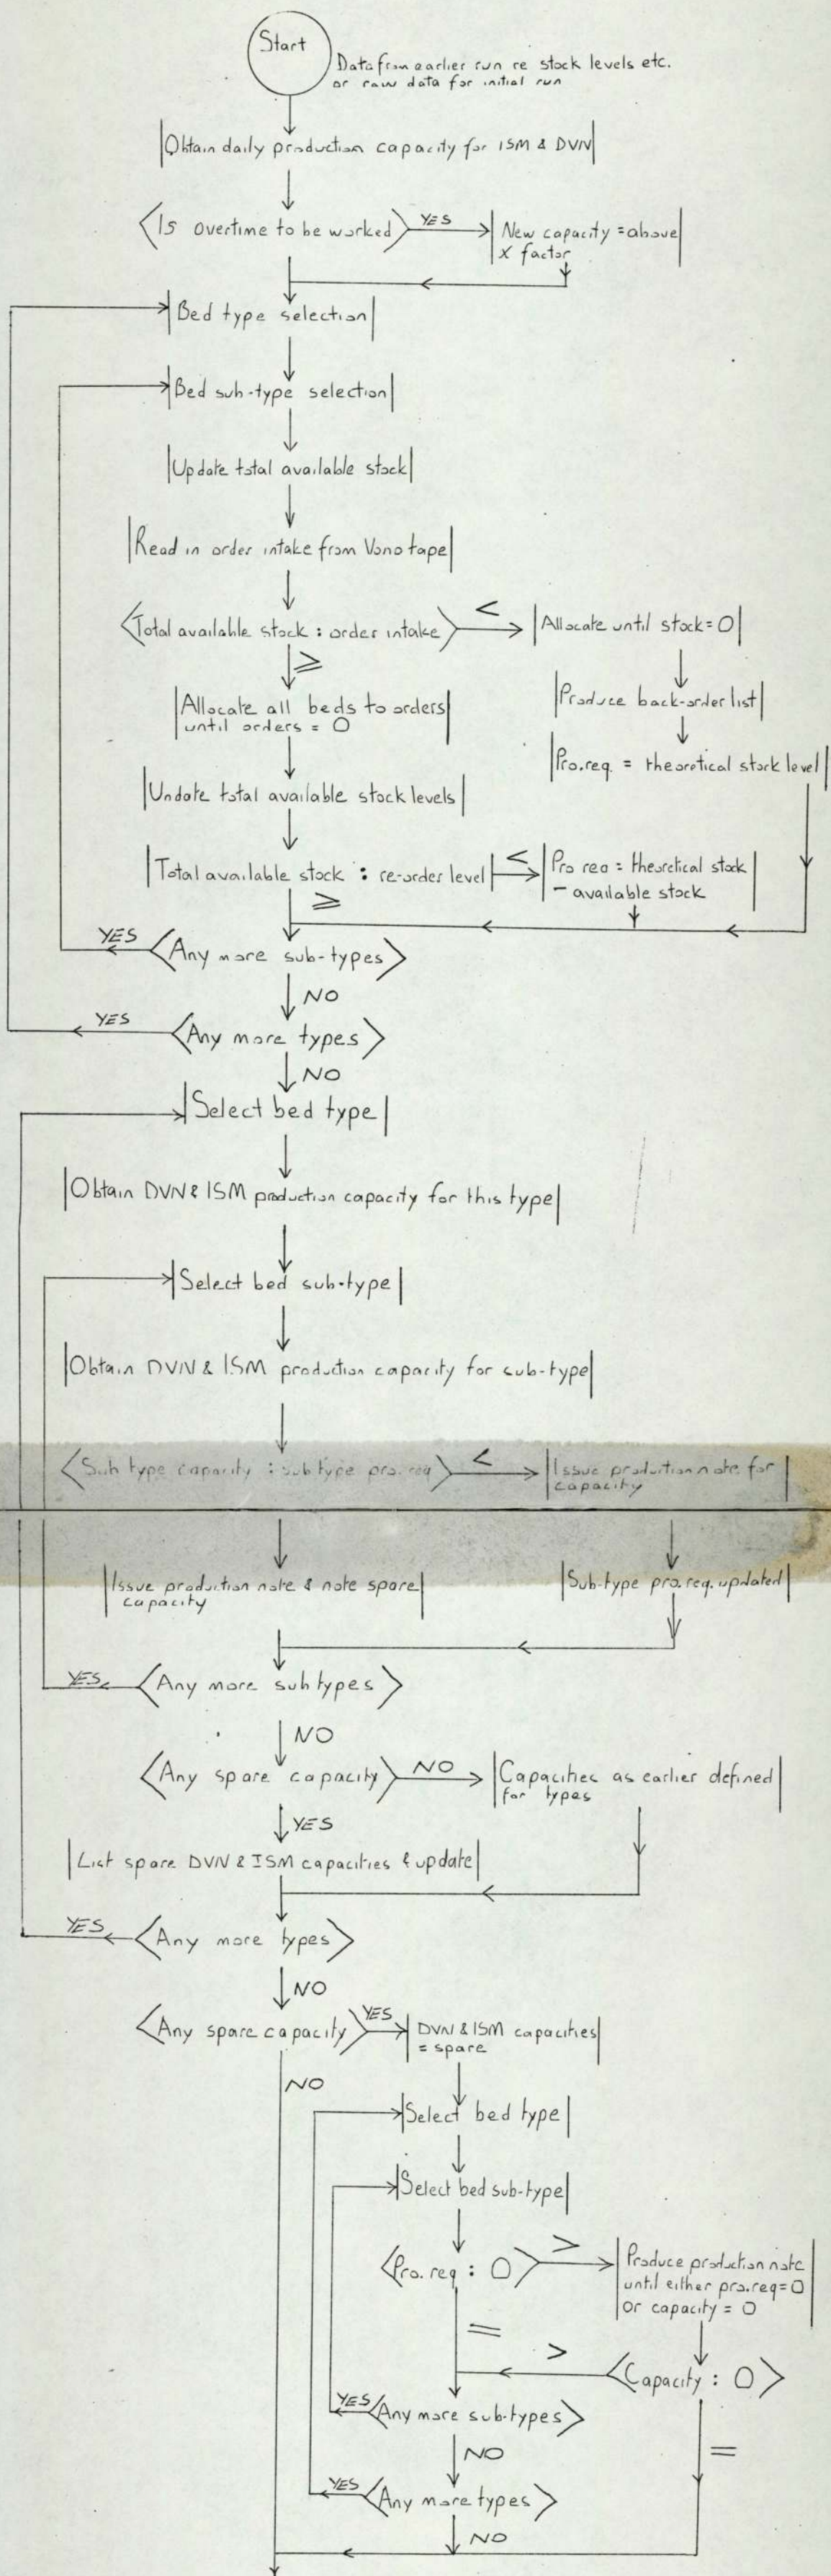 Start
Data from earlier run re stock levels etc.
or raw data for initial run
Obtain daily production capacity for ISM & DVN
Is overtime to be worked
YES
New capacity = above
X factor
Bed type selection
Bed sub-type selection
Update total available stock
Read in order intake from Vono tape
Total available stock : order intake
<
Allocate until stock = 0
≥
Allocate all beds to orders
until orders = 0
Produce back-order list
Pro.req. = theoretical stock level
Undate total available stock levels
Total available stock : re-order level
<
Pro req = theoretical stock
- available stock
≥
YES
Any more sub-types
NO
YES
Any more types
NO
Select bed type
Obtain DVN & ISM production capacity for this type
Select bed sub-type
Obtain DVN & ISM production capacity for sub-type
Sub type capacity : sub type pro. req
<
Issue production note for
capacity
Issue production note & note spare
capacity
Sub-type pro. req. updated
YES
Any more sub types
NO
Any spare capacity
NO
Capacities as earlier defined
for types
YES
List spare DVN & ISM capacities & update
YES
Any more types
NO
Any spare capacity
YES
DVN & ISM capacities
= spare
NO
Select bed type
Select bed sub-type
Pro. req : 0
>
Produce production note
until either pro. req = 0
or capacity = 0
=
>
Capacity : 0
YES
Any more sub-types
NO
=
YES
Any more types
NO